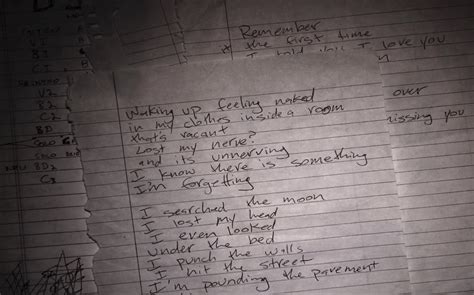 Remember
* the first time
I told you I love you
over
missing you
Waking up feeling naked
in my clothes inside a room
thats vacant
Lost my nerve?
and its unnerving
I know there is something
I'm forgetting
I searched the moon
I lost my head
I even looked
under the bed
I punch the walls
I hit the street
I'm pounding the pavement
V2
B2
C2
BD
Solo
Solo
BD2
C3